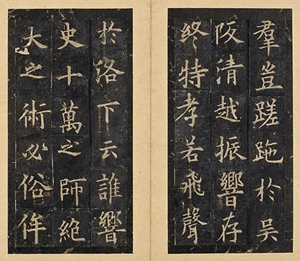 羣豈蹉跎於吳
阪清越振響存
終特孝若飛聲
於洛下云誰響
史十萬之師絕
大之術必俗侔